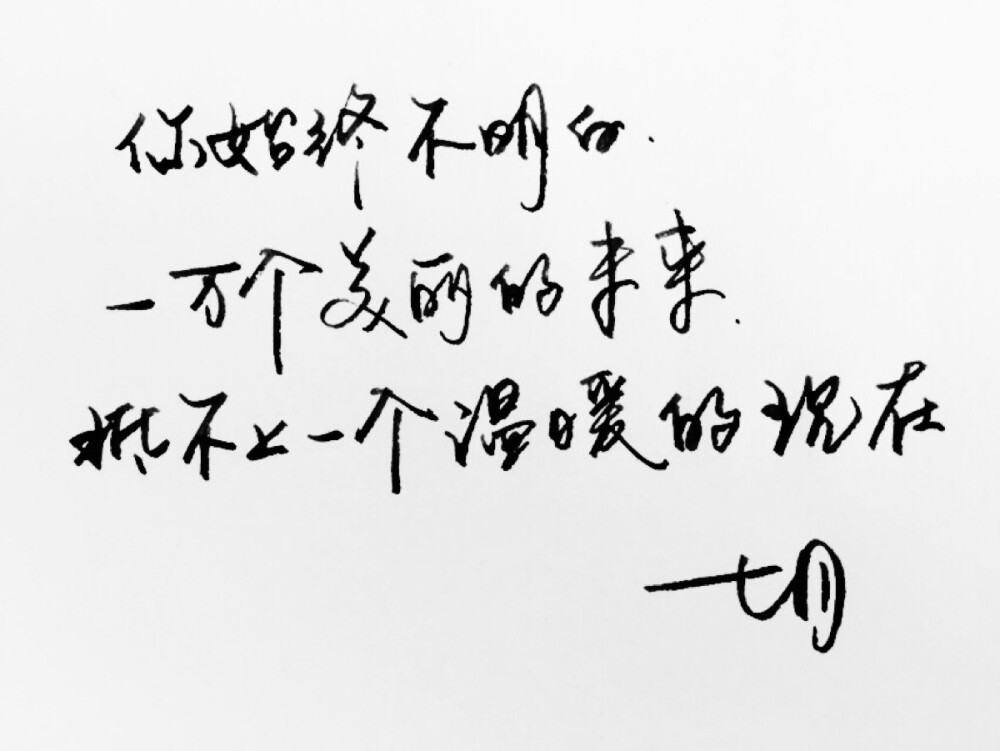 你始终不明白.
一万个美丽的未来.
抵不上一个温暖的现在
七月